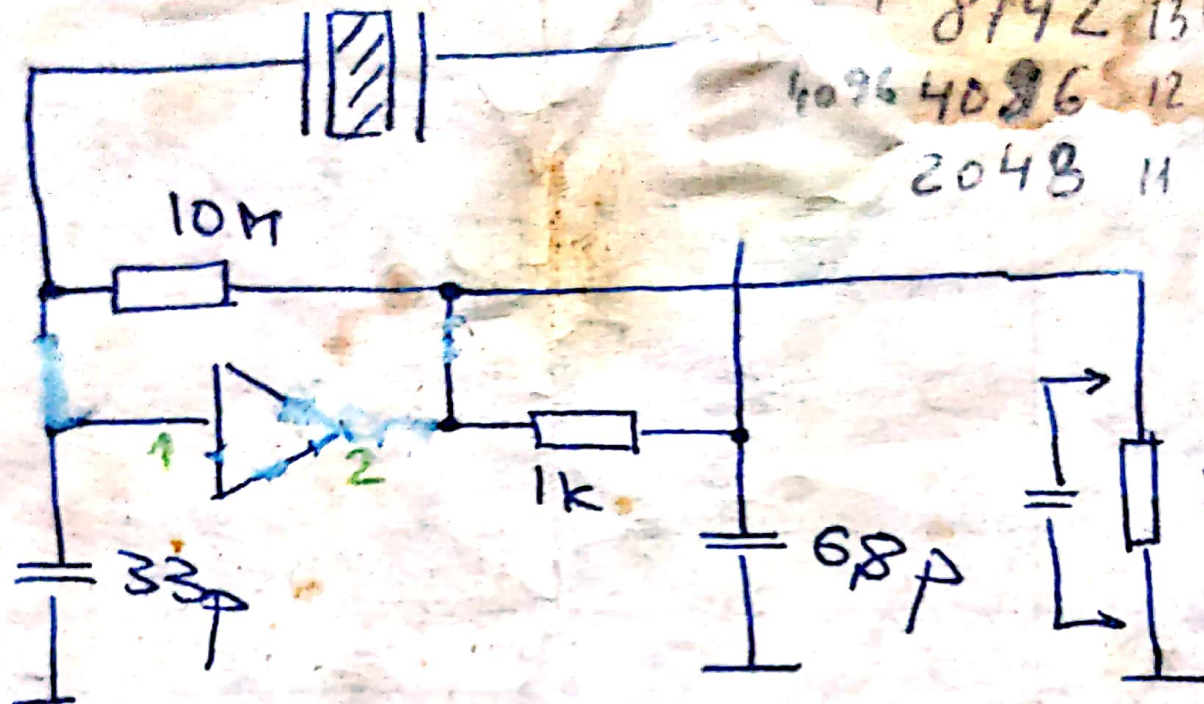 8192 13
4096 4096 12
2048 11
10M
1
2
1k
33p
68p